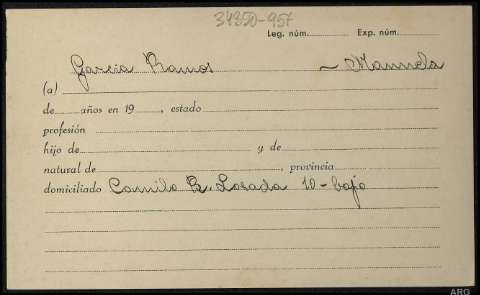 34350-957
Leg. núm. Exp. núm.
Garcia Ramos - Manuela
(a)
de años en 19 , estado
profesión
hijo de y de
natural de , provincia
domiciliado Camilo R. Losada 10-bajo
ARG